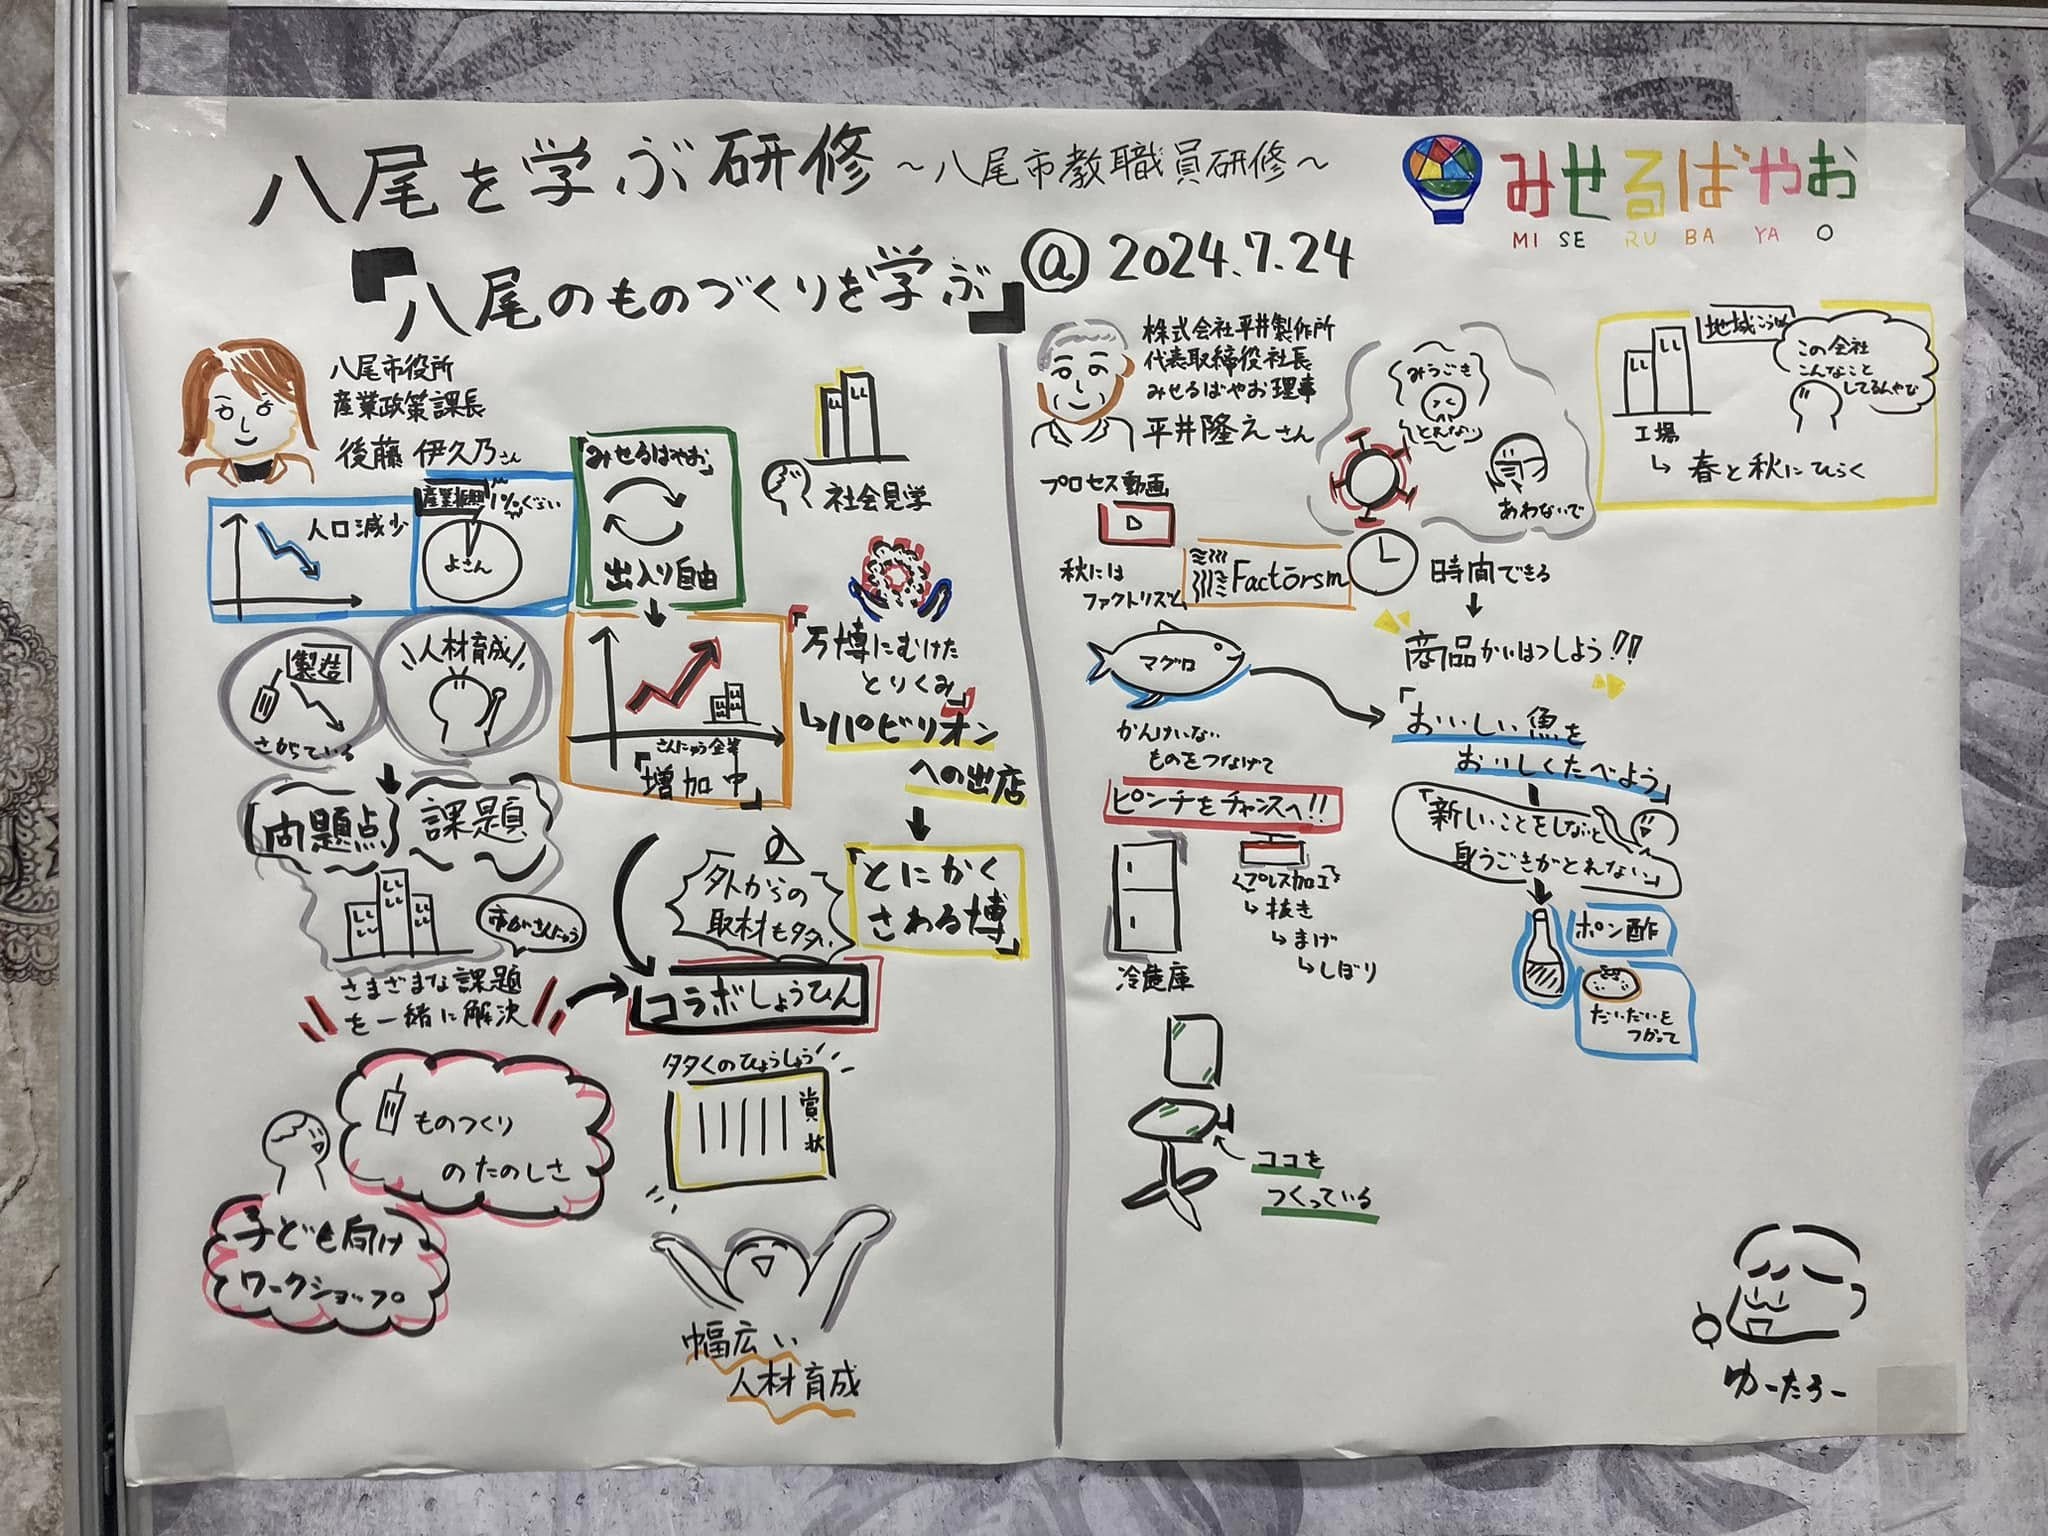 八尾を学ぶ研修 ～八尾市教職員研修～
『八尾のものづくりを学ぶ』 @ 2024.7.24
みせるばやお
MI SE RU BA YA O
八尾市役所
産業政策課長
後藤 伊久乃さん
人口減少
産業振興 1%ぐらい
よさん
『みせるばやお』
出入り自由
社会見学
製造
さがっている
人材育成
さんにゅう企業
「増加中」
『万博にむけた
とりくみ』
↳パビリオン
への出店
『とにかく
さわる博』
問題点
課題
市がさんにゅう
さまざまな課題
を一緒に解決
外からの
取材も多い
コラボしょうひん
多くのひょうしょう
賞状
ものつくり
のたのしさ
子ども向け
ワークショップ
幅広い
人材育成
株式会社平井製作所
代表取締役社長
みせるばやお理事
平井隆之さん
プロセス動画
秋には
ファクトリズム
Factōrsm
みうごき
とれない
あわないで
時間できる
商品かいはつしよう!!
マグロ
かんけいない
ものをつなげて
ピンチをチャンスへ!!
「おいしい魚を
おいしくたべよう」
「新しいことをしないと
身うごきがとれない」
ポン酢
だいだいを
つかって
冷蔵庫
〈プレス加工〉
↳抜き
↳まげ
↳しぼり
ココを
つくっている
地域こうけん
この会社
こんなこと
してるんやな
工場
↳春と秋にひらく
ゆーたろー